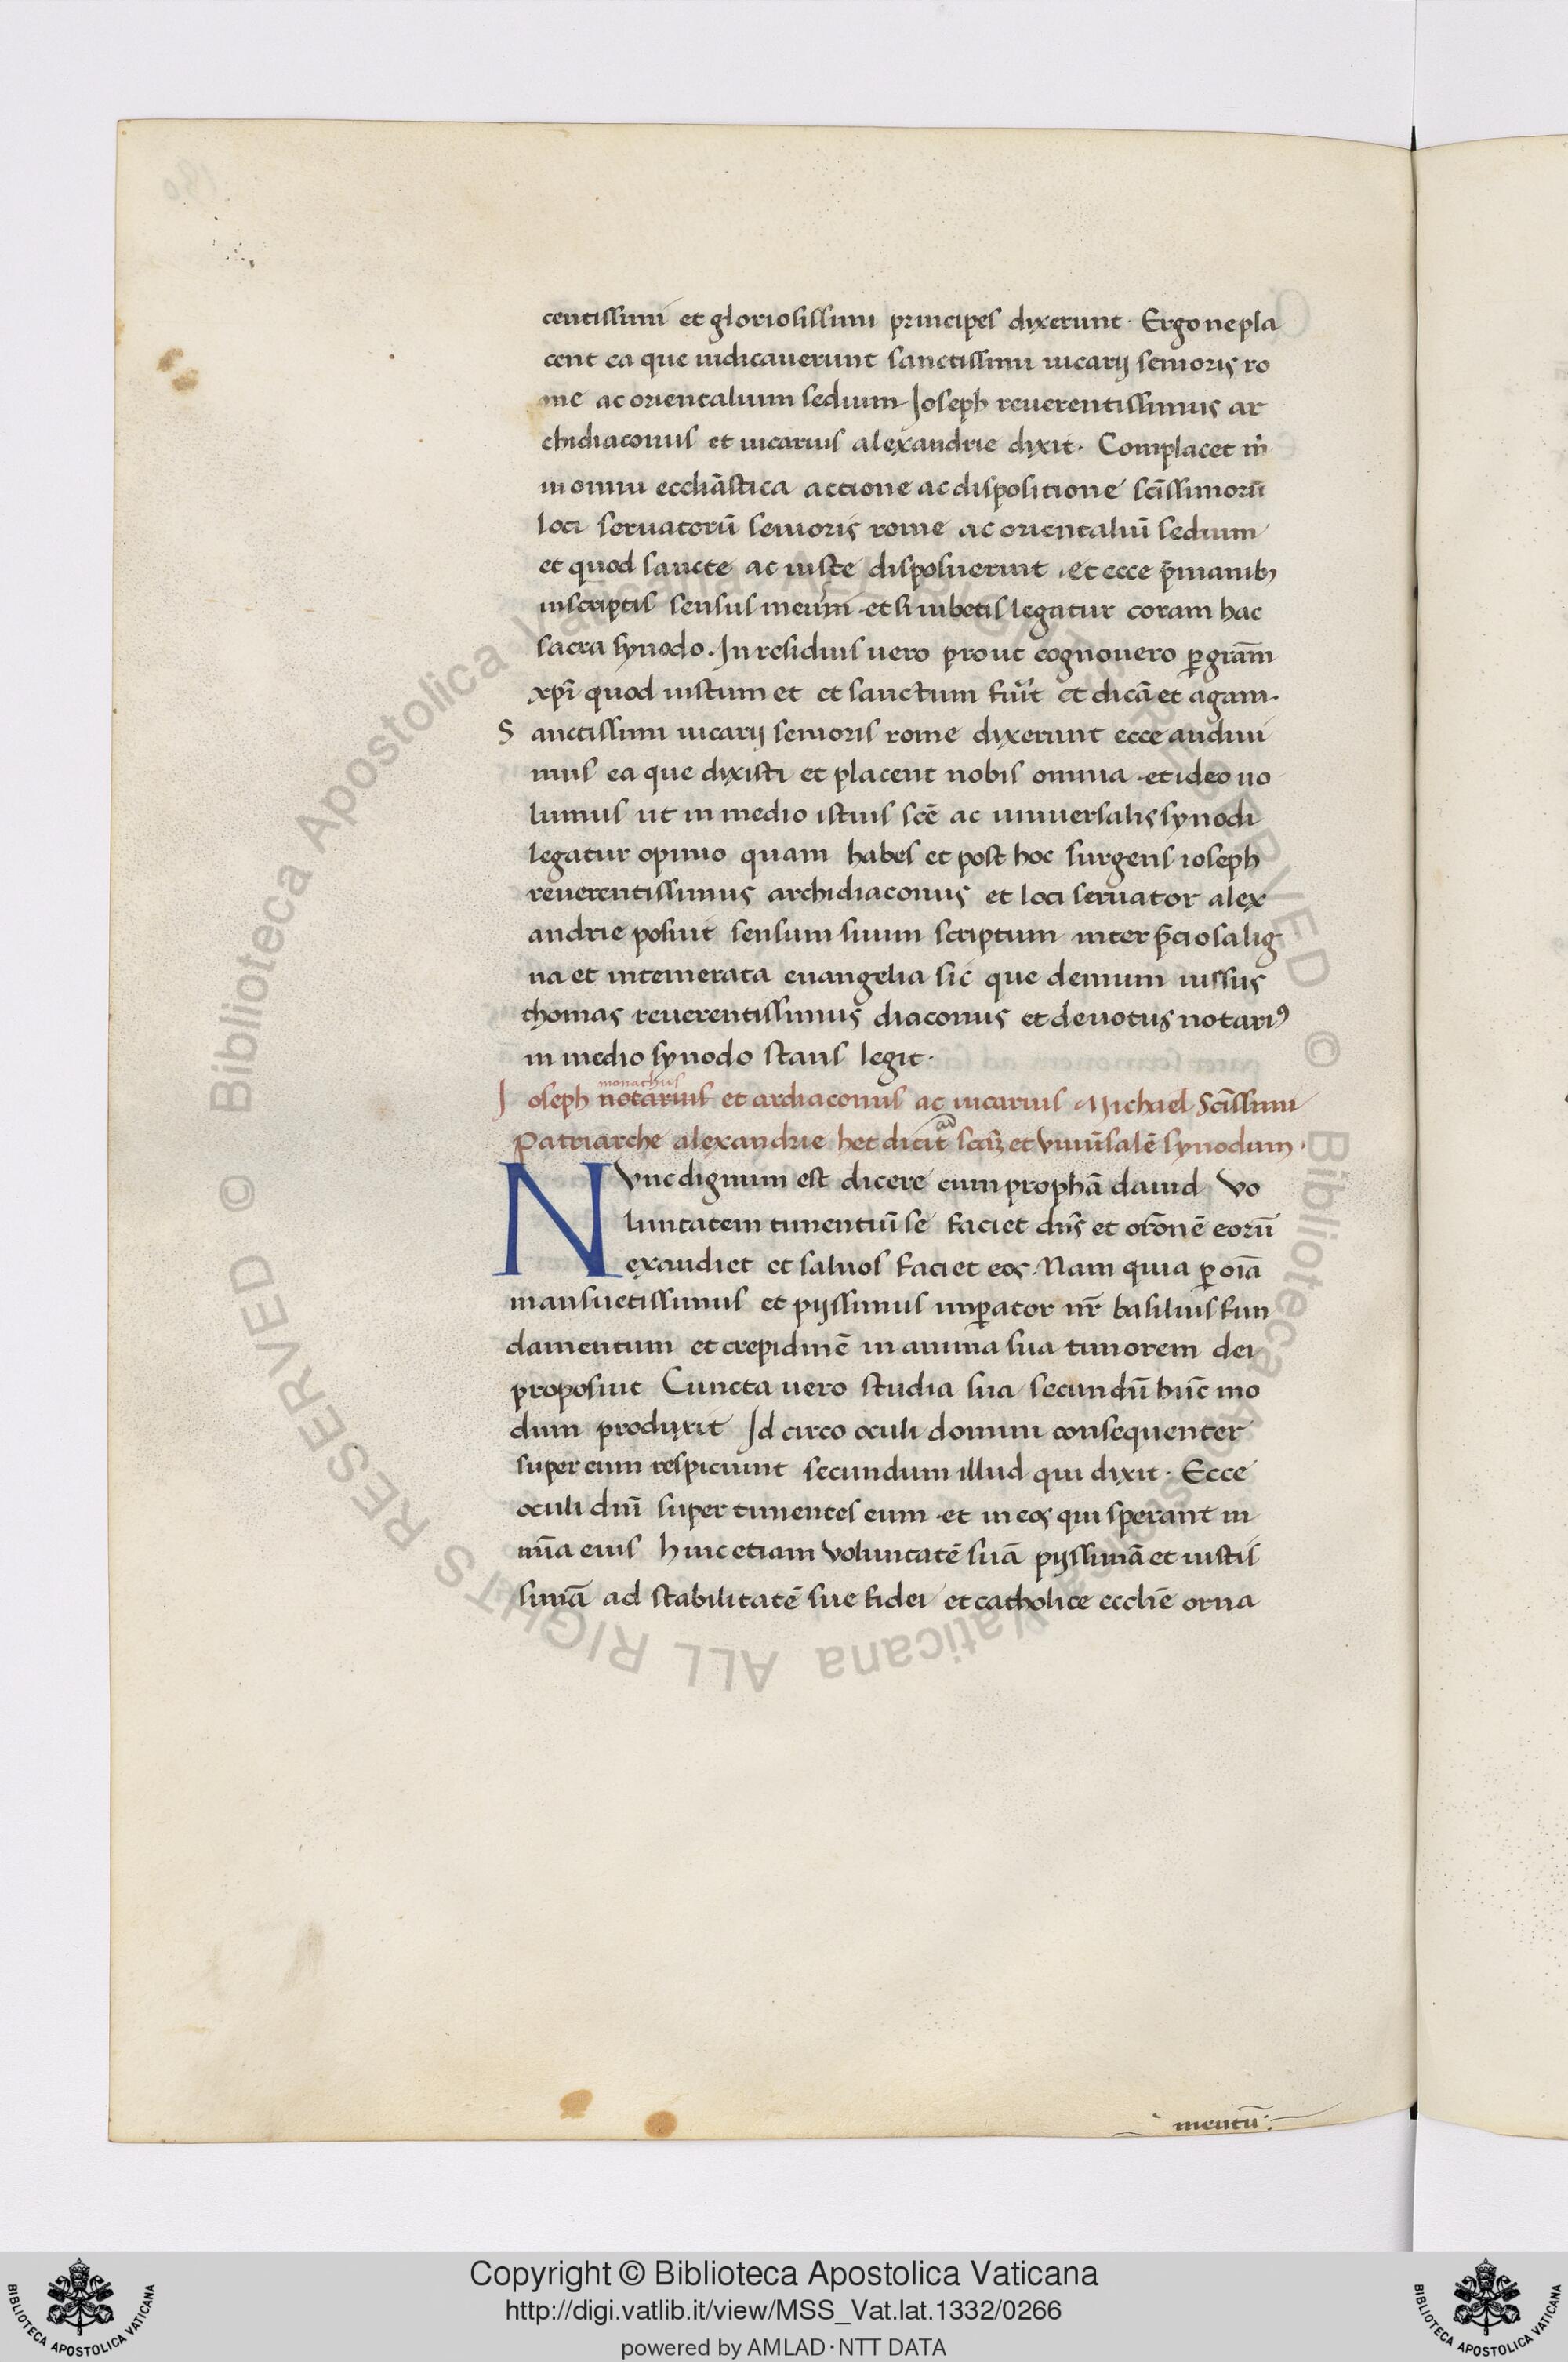 centissimi et gloriosissimi principes dixerunt. Ergo ne pla
cent ea que iudicauerunt sanctissimi uicarij senioris ro
me ac orientalium sedium Ioseph reuerentissimus ar
chidiaconus et uicarius alexandrie dixit. Complacet m̅
in omni eccliāstica actione ac dispositione scīssimorū
loci seruatorū senioris rome ac orientaliū sedium
et quod sancte ac iuste disposuerint. et ecce p̄manibꝫ
inscriptis sensus meum et si iubetis legatur coram hac
sacra synodo. In residuis uero prout cognouero ꝑ grām
xp̄i quod iustum et et sanctum fu̅it et dicā et agam.
Sanctissimi uicarij senioris rome dixerunt ecce audiui
mus ea que dixisti et placent nobis omnia et ideo uo
lumus ut in medio istius scē ac uniuersalis synodi
legatur opinio quam habes et post hoc surgens ioseph
reuerentissimus archidiaconus et loci seruator alex
andrie posuit sensum suum scriptum inter p̄ciosa lig
na et intemerata euangelia sic que demum iussus
thomas reuerentissimus diaconus et deuotus notariꝰ
in medio synodo stans legit.
monachus
Ioseph notarius et ardiaconus ac uicarius Michael Scīssimi
ad
Patriarche alexandrie hec dicit scāꝫ et Vniūsalē synodum.
NVnc dignum est dicere cum prophā dauid Vo
luntatem timentiū se faciet dn̄s et or̄onē eorū
exaudiet et saluos faciet eos. Nam quia ꝑ oīa
mansuetissimus et pijssimus imꝑator nr̄ basilius fun
damentum et crepidinē in anima sua timorem dei
proposuit Cuncta uero studia sua secundū hūc mo
dum produxit Id circo oculi domini consequenter
super eum respiciunt secundum illud qui dixit. Ecce
oculi dn̄i super timentes eum et in eos qui sperant in
mīa eius hinc etiam Voluntatē suā pijssimā et iustis
simā ad stabilitatē sue fidei et catholice ecclīe orna
mentū:
Copyright © Biblioteca Apostolica Vaticana
http://digi.vatlib.it/view/MSS_Vat.lat.1332/0266
powered by AMLAD·NTT DATA
BIBLIOTECA APOSTOLICA VATICANA
BIBLIOTECA APOSTOLICA VATICANA
© Biblioteca Apostolica Vaticana ALL RIGHTS RESERVED © Biblioteca Apostolica Vaticana ALL RIGHTS RESERVED